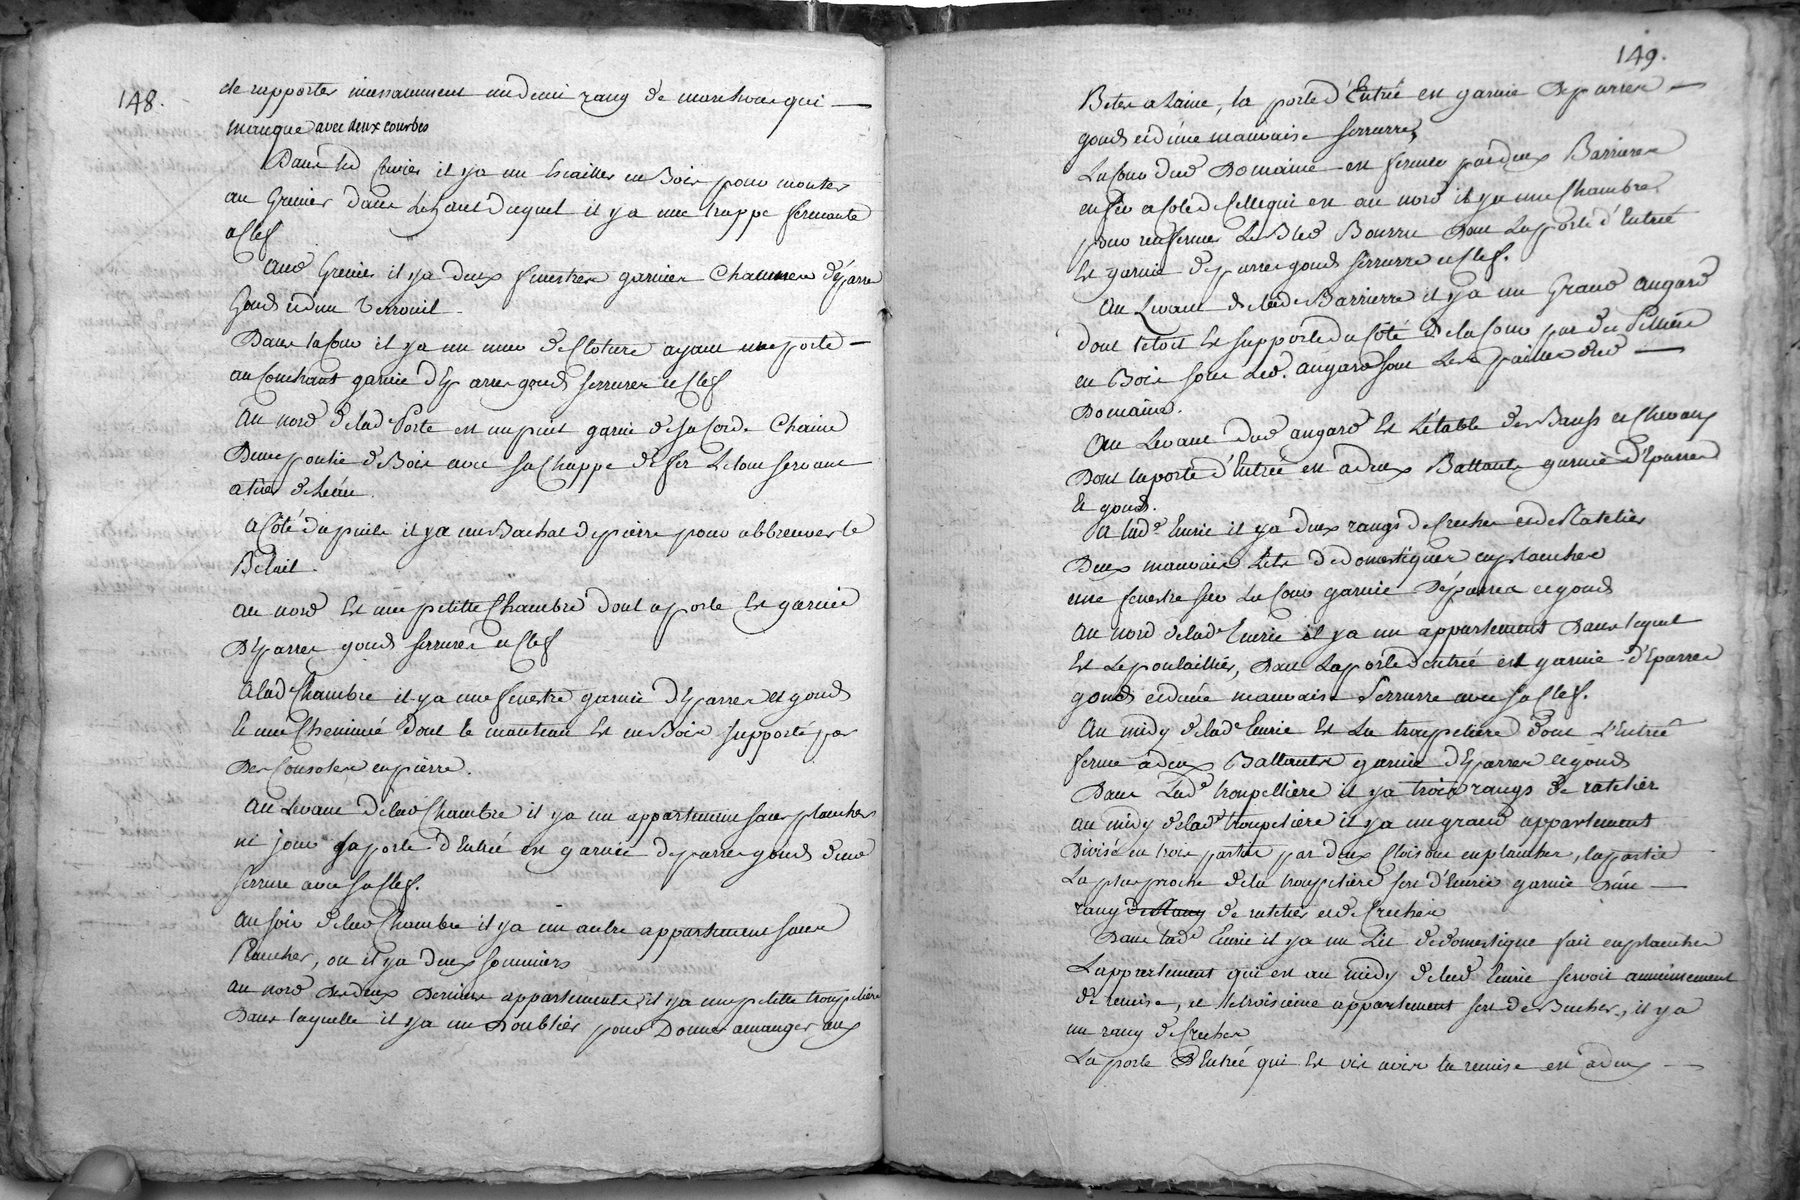 148.
de rapporter incessamment un demi rang de marchoir qui
manque avec deux courbes
Dans lad Cuvier il ya un Escallier en Bois pour monter
au Grenier dans Le haut duquel il ya une trappe fermante
a Clef
Aud Grenier il ya deux fenestres garnies Chacunes d'Eparre
Gonds et d'un Verrouil.
Dans la Cour il ya un mur de Cloture ayant une porte
au Couchant garnie d'Eparres gonds serrures et Clef
Au nord de lad.e Porte est un puit garni de sa Corde Chaine
D'une poulie de Bois avec sa Chappe de fer Le tout servant
a tirer de l'eau.
a Côté du puits il ya un Bachat de pierre pour abbreuver le
Betail.
au nord Est une petitte Chambre dont la porte Est garnie
D'Eparres gonds serrures et Clef
a lad.e Chambre il ya une fenestre garnie d'Eparres et gonds
Et une Cheminée Dont le manteau Est en Bois supporté par
Des Consoles en pierre.
Au Levant de lad Chambre il ya un appartement sans plancher
ni jour sa porte d'Entrée est garnie d'eparres gonds d'une
serrure avec sa Clef.
au soir de lad Chambre il ya un autre appartement sans
Plancher, ou il ya deux sommiers
au nord Des deux Derniers appartements, il ya une petitte troupelière
Dans laquelle il ya un Doublier pour Donner a manger aux
149.
Betes a laine, la porte d'Entrée est garnie D'eparres
gonds et d'une mauvaise serrurre
La Cour dud Domaine est fermée par deux Barrieres
a Coté de Celle qui est au nord il ya une Chambre
pour renfermer Le Bled Bourru Dont La porte d'Entrée
Est garnie d'eparres gonds serrurre et Clef.
Au Levant de lad.e Barrierre il ya un Grand angard
dont le toit Est supporté du Côté de la Cour par des Pilliers
en Bois sous Led. angard sont Les pailles dud
Domaine.
Au Levant dud angard Est L'étable des Bœufs et Chevaux
Dont la porte d'Entrée est a deux Battants garnie d'Eparres
Et gonds.
A lad.e Ecurie il ya deux rangs de Creches et de Ratelier
Deux mauvais Lits de domestiques en planches
une fenestre sur La Cour garnie D'éparres et gonds
Au Nord de lad.e Ecurie il ya un appartement Dans lequel
Est Le poulaillier, Dont La porte d'entrée est garnie d'Eparres
gonds et d'une mauvaise Serrurre avec sa Clef.
Au midy de lad.e Ecurie Est La troupelière dont L'Entrée
ferme a deux Battants garnie d'Eparres et gonds
Dans Lad.e troupellière il ya trois rangs de ratelier
Au midy de lad.e troupelière il ya un grand appartement
Divisé en trois parties par deux Cloisons en plancher, la partie
La plus proche de la troupelière sert d'Ecurie garnie D'un
rang de Rang de ratelier et de Creches
Dans lad.e Ecurie il ya un Lit de domestique fait en plancher
L'appartement qui est au midy de lad.e Ecurie servoit anciennement
de remise, et le troisieme appartement sert de Bucher, il ya
un rang de Creches
La porte D'Entrée qui Est vis avis la remise est a deux